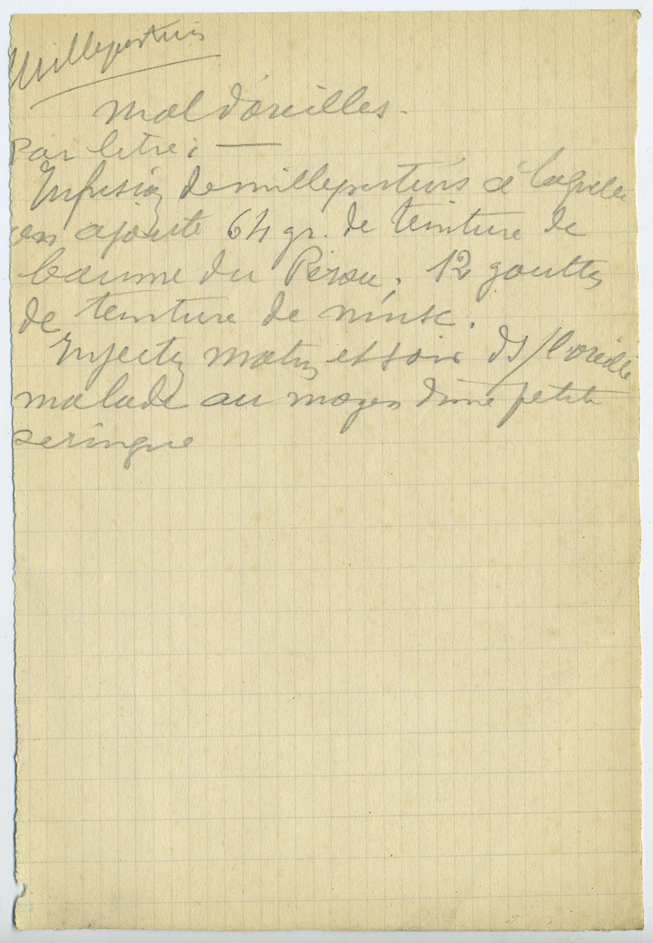 Millepertuis
Mal d'oreilles.
Par litre : —
Infusion de millepertuis à laquelle
on ajoute 64 gr. de teinture de
baume du Pérou, 12 gouttes
de teinture de musc.
Injectez matin et soir ds/l'oreille
malade au moyen d'une petite
seringue